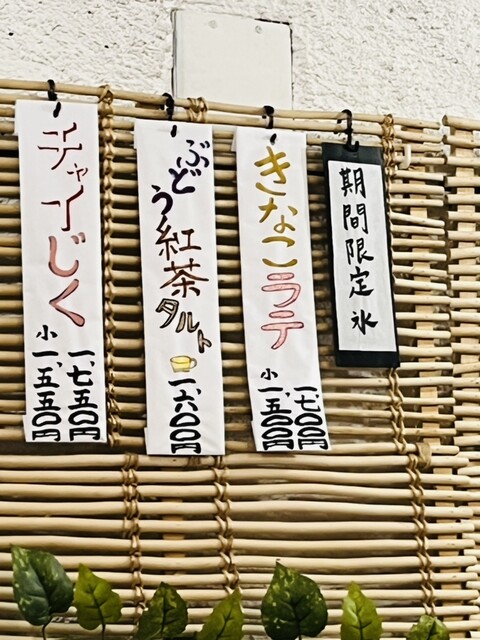 期間限定氷
きなこラテ
一、七〇〇円
小 一、五〇〇円
ぶどう紅茶タルト
一、六〇〇円
チャイじく
一、七五〇円
小 一、五五〇円